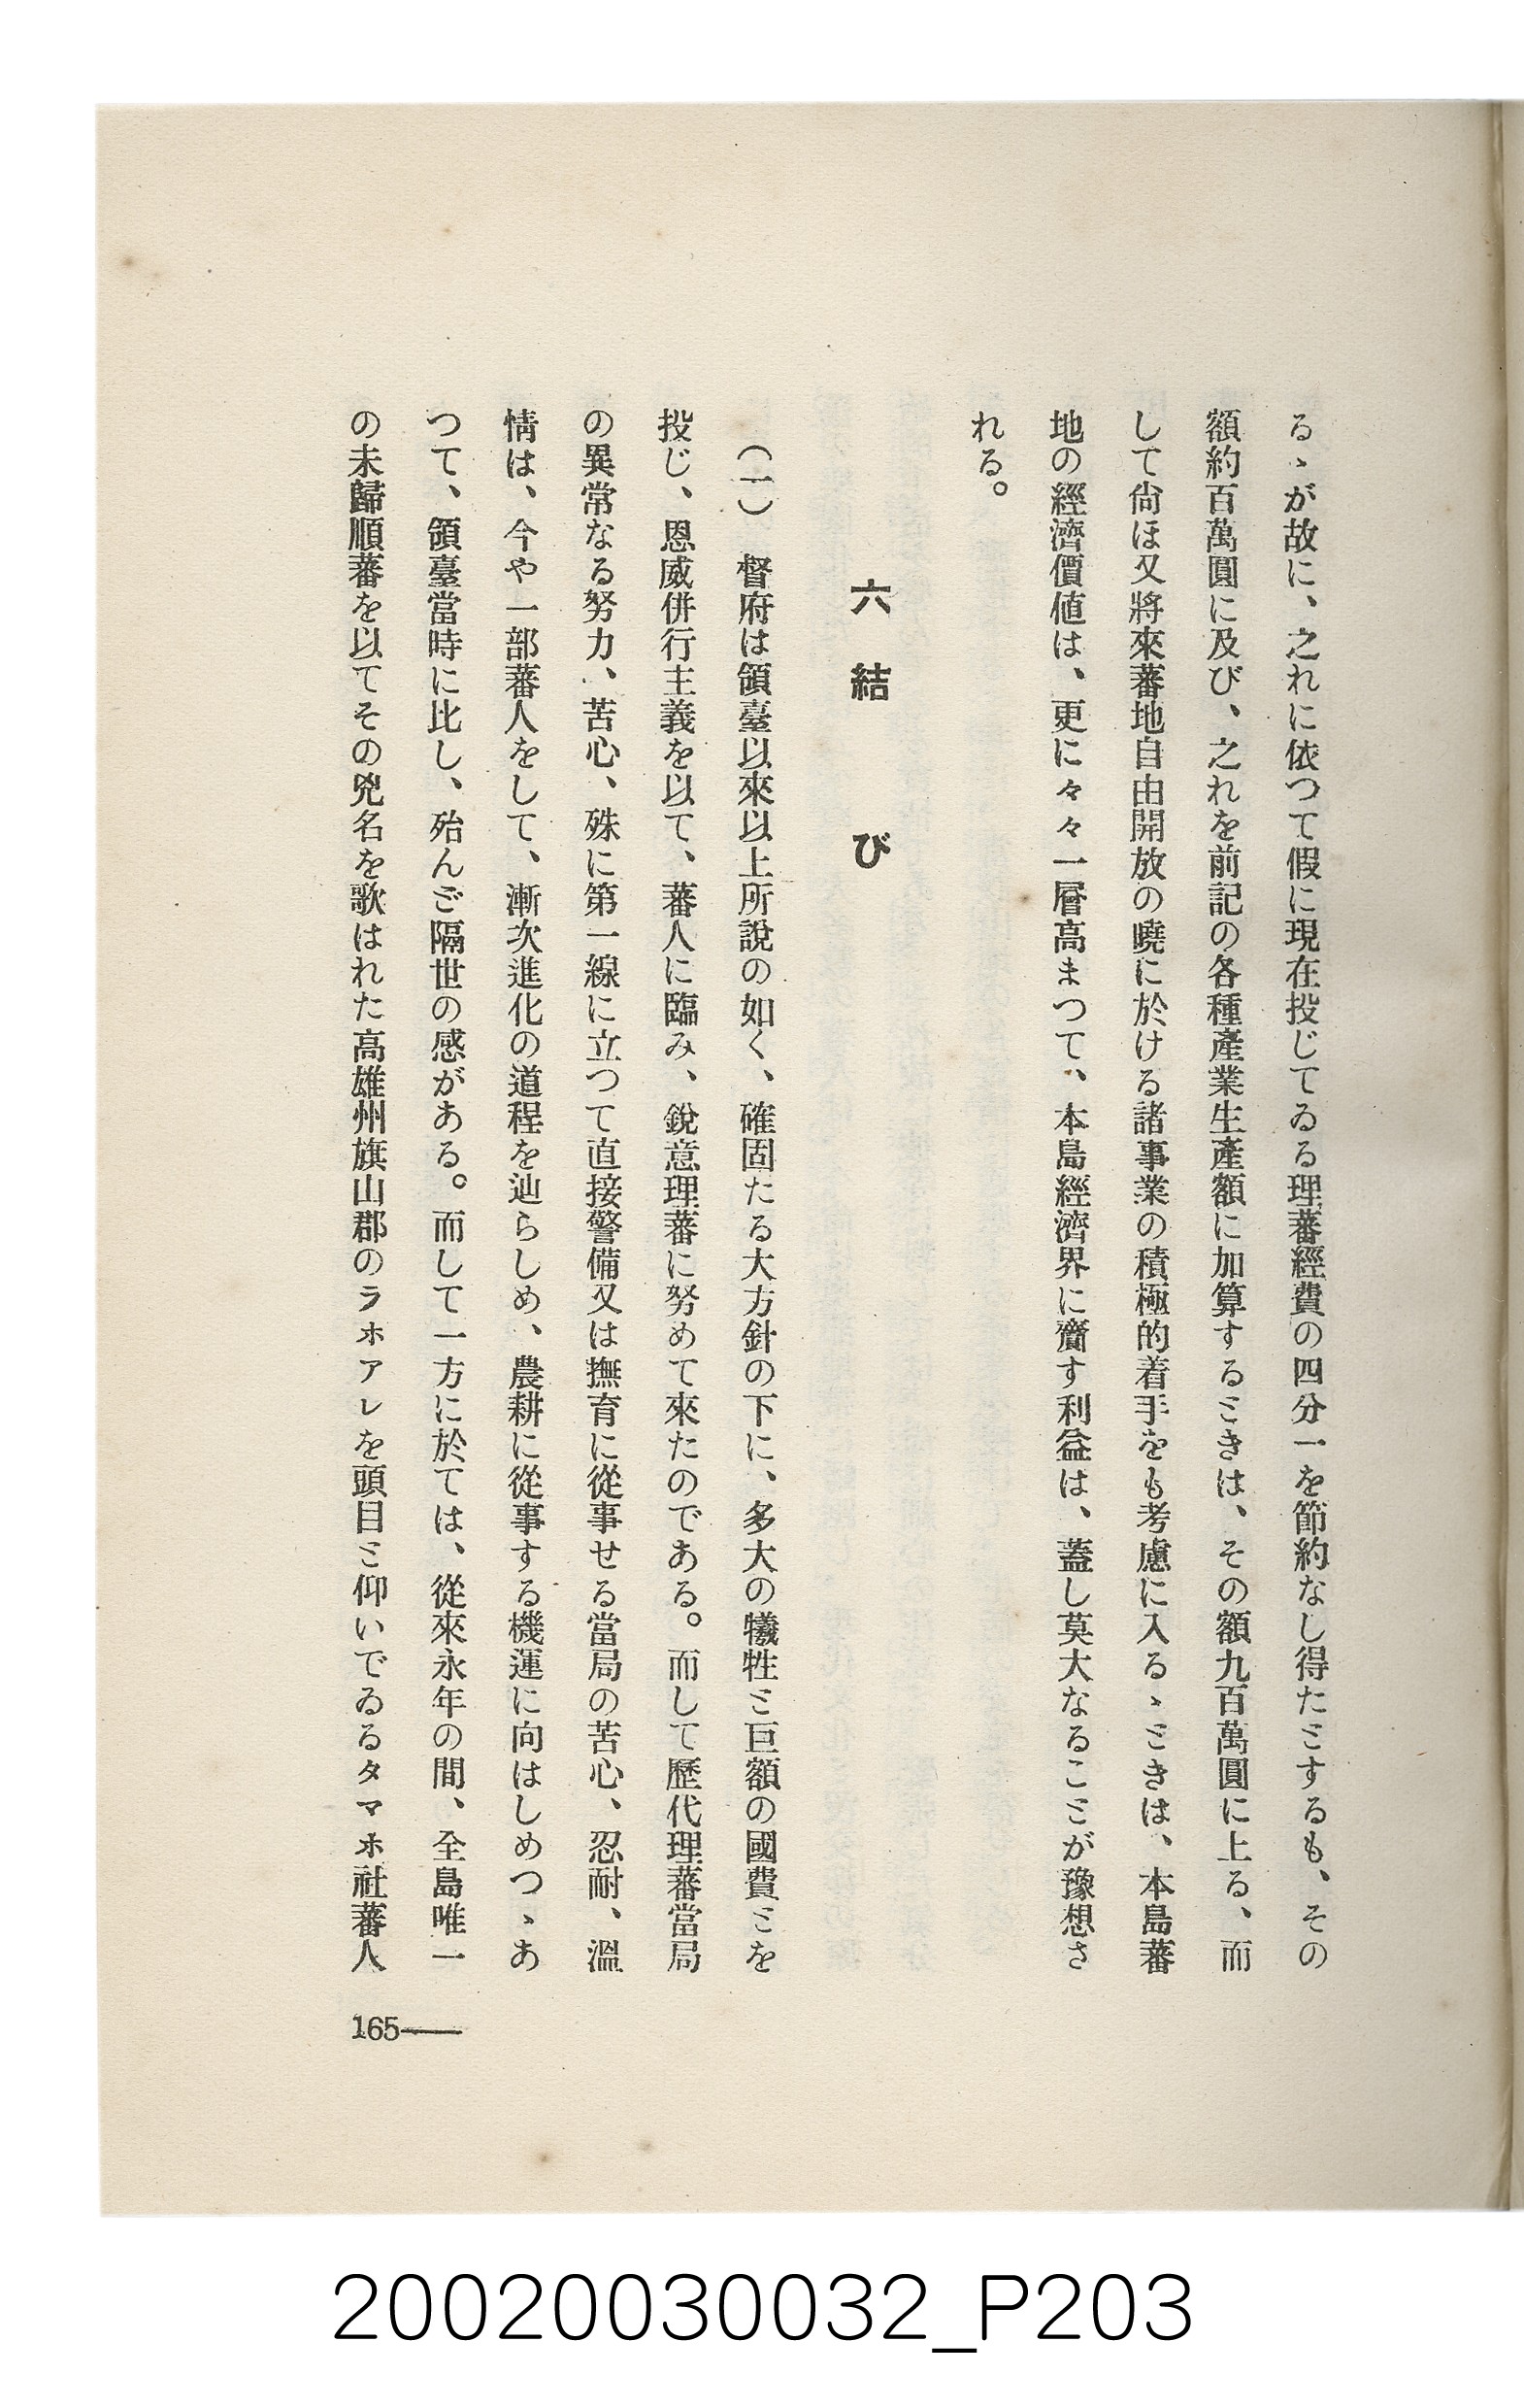 るゝが故に、之れに依つて假に現在投じてゐる理蕃經費の四分一を節約なし得たとするも、その
額約百萬圓に及び、之れを前記の各種產業生產額に加算するときは、その額九百萬圓に上る、而
して尙ほ又將來蕃地自由開放の曉に於ける諸事業の積極的着手をも考慮に入るゝときは、本島蕃
地の經濟價値は、更に々々一層高まつて、本島經濟界に齎す利益は、蓋し莫大なることが豫想さ
れる。
六 結 び
(一) 督府は領臺以來以上所說の如く、確固たる大方針の下に、多大の犧牲と巨額の國費とを
投じ、恩威併行主義を以て、蕃人に臨み、銳意理蕃に努めて來たのである。而して歷代理蕃當局
の異常なる努力、苦心、殊に第一線に立つて直接警備又は撫育に從事せる當局の苦心、忍耐、溫
情は、今や一部蕃人をして、漸次進化の道程を辿らしめ、農耕に從事する機運に向はしめつゝあ
つて、領臺當時に比し、殆んど隔世の感がある。而して一方に於ては、從來永年の間、全島唯一
の未歸順蕃を以てその兇名を歌はれた高雄州旗山郡のラホアレを頭目と仰いでゐるタマホ社蕃人
165—
20020030032_P203